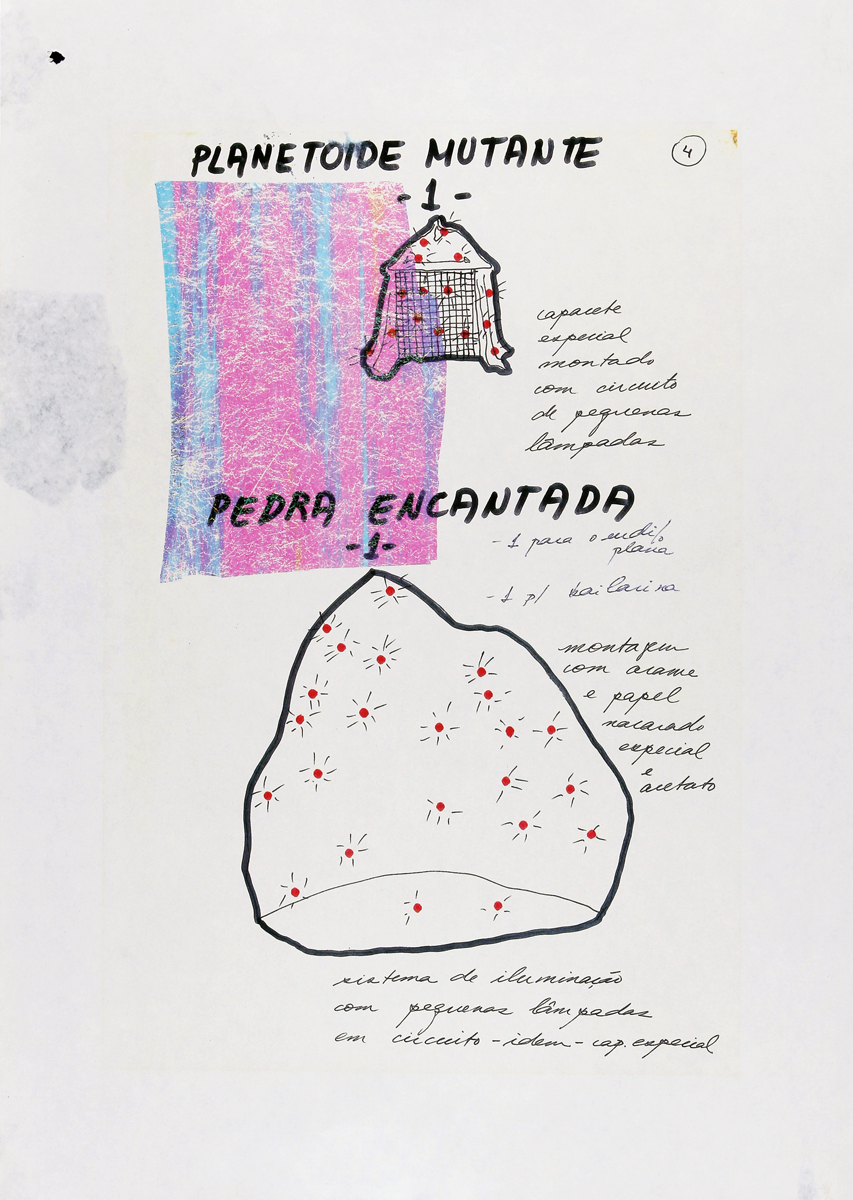 PLANETOIDE MUTANTE
4
-1-
capacete
especial
montado
com circuito
de pequenas
lâmpadas
PEDRA ENCANTADA
-1-
-1 para o
plana
-1 p/ bailarina
montagem
com arame
e papel
nacarado
especial
e
acetato
sistema de iluminação
com pequenas lâmpadas
em circuito - idem - cap. especial